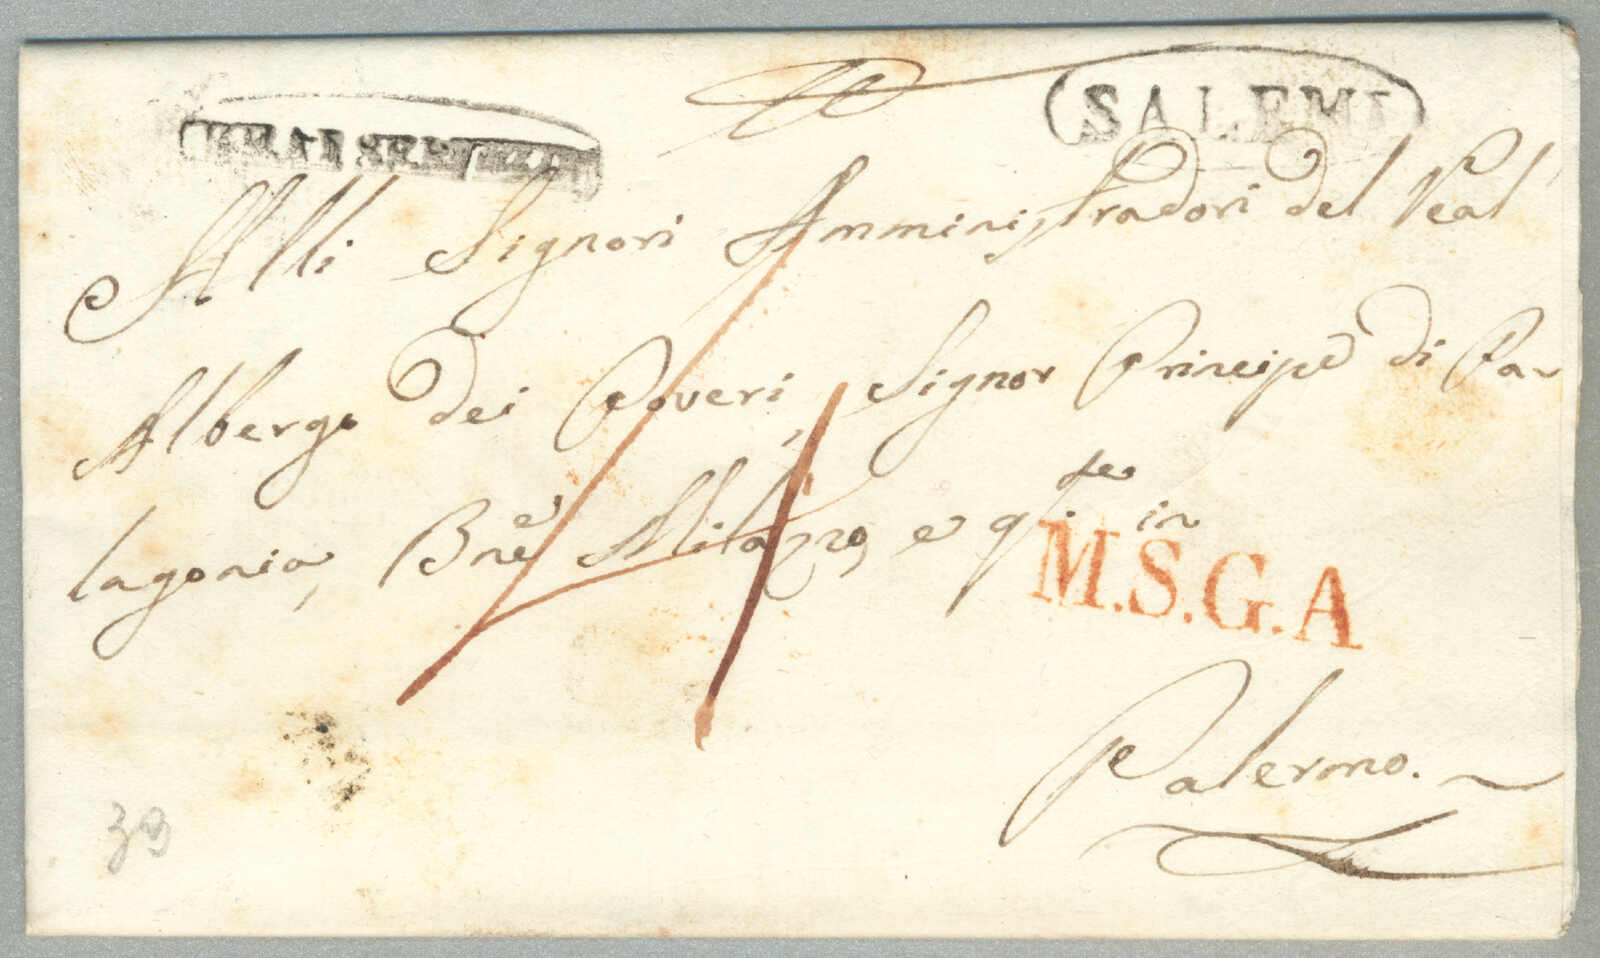 SALEMI
Alli Signori Amministradori del Real
Albergo dei Poveri, Signor Principe di Pa
lagonia, Bne Milazzo, e in
M.S.G.A
Palermo.
39